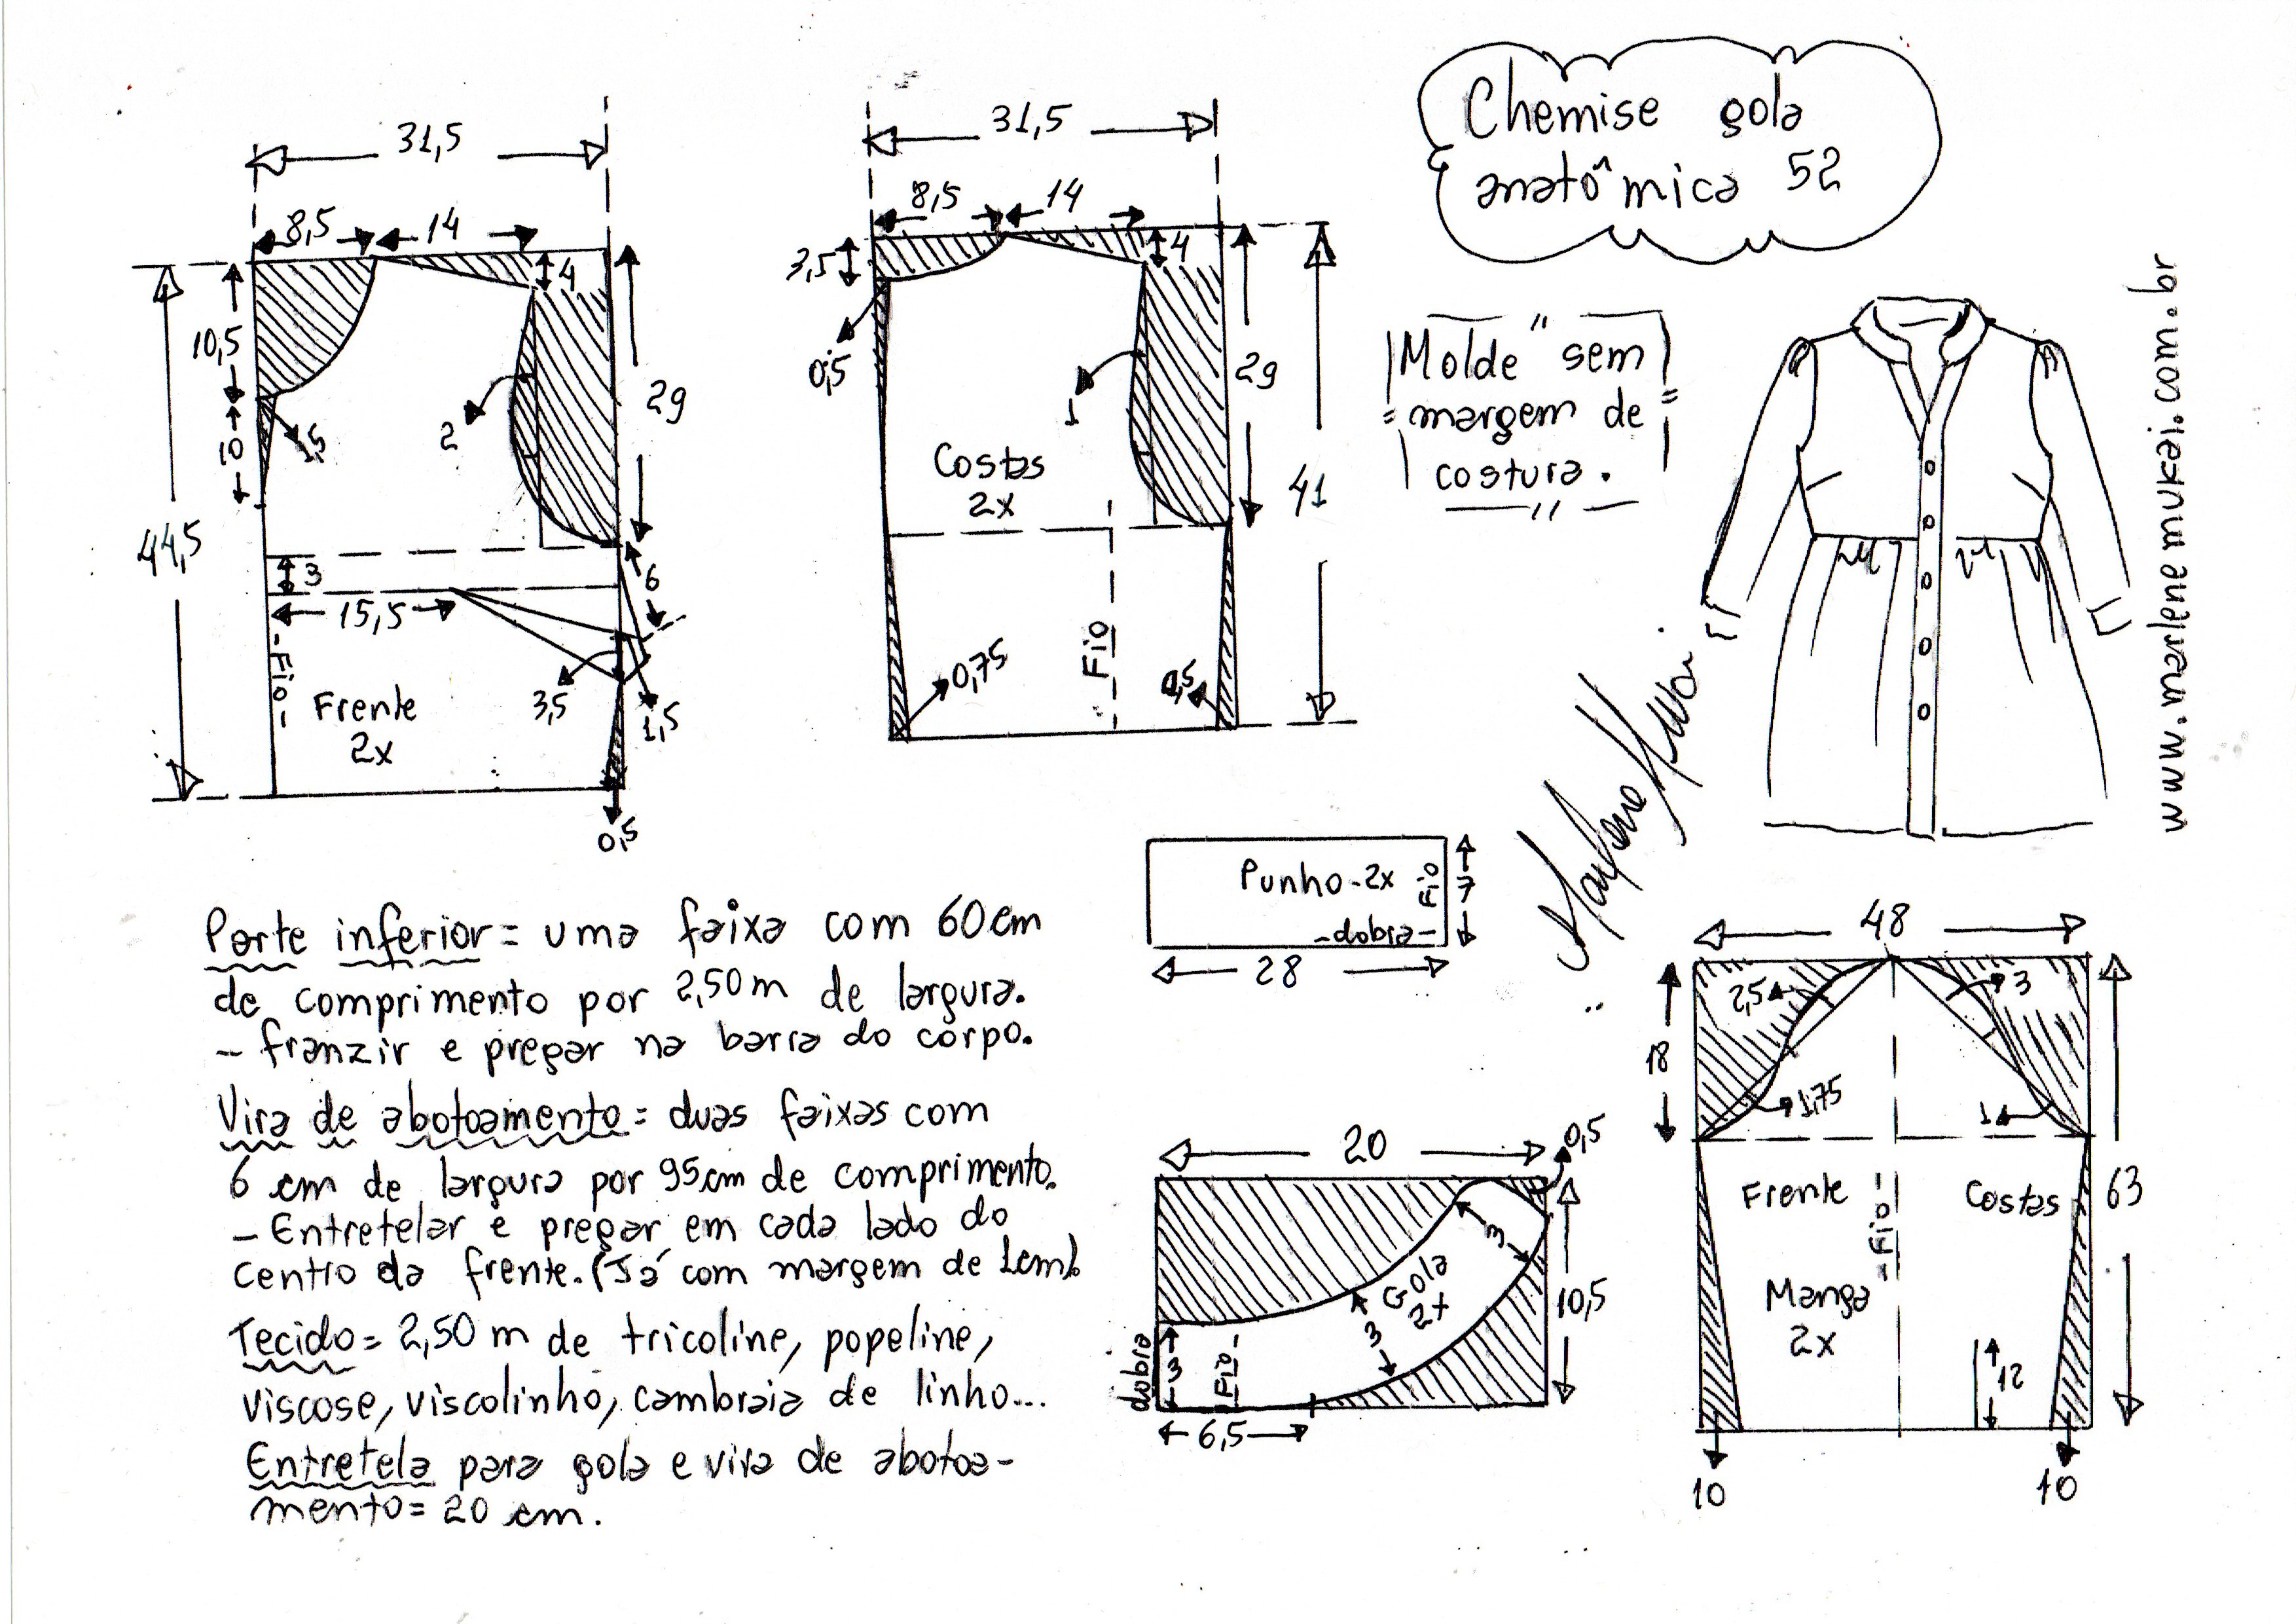 Chemise gola
anatômica 52
31,5
8,5
14
4
10,5
10
1,5
2
29
44,5
3
15,5
6
-Fio-
3,5
1,5
Frente
2x
0,5
31,5
8,5
14
3,5
4
0,5
1
29
41
Costas
2x
Fio
0,75
0,5
"Molde" sem
margem de
costura.
www.marlenemukai.com.br
Marlene Mukai
Punho-2x
Fio
7
-dobra-
28
Parte inferior= uma faixa com 60cm
de comprimento por 2,50m de largura.
- franzir e pregar na barra do corpo.
Vira de abotoamento= duas faixas com
6 cm de largura por 95cm de comprimento.
- Entretelar e pregar em cada lado do
centro da frente. (Já com margem de 1cm).
Tecido= 2,50 m de tricoline, popeline,
viscose, viscolinho, cambraia de linho...
Entretela para gola e vira de abotoa-
mento= 20 cm.
20
0,5
3
Gola
2x
3
10,5
dobra
3
Fio-
6,5
48
2,5
3
18
1,75
1
Frente
-Fio-
Costas
63
Manga
2x
12
10
10